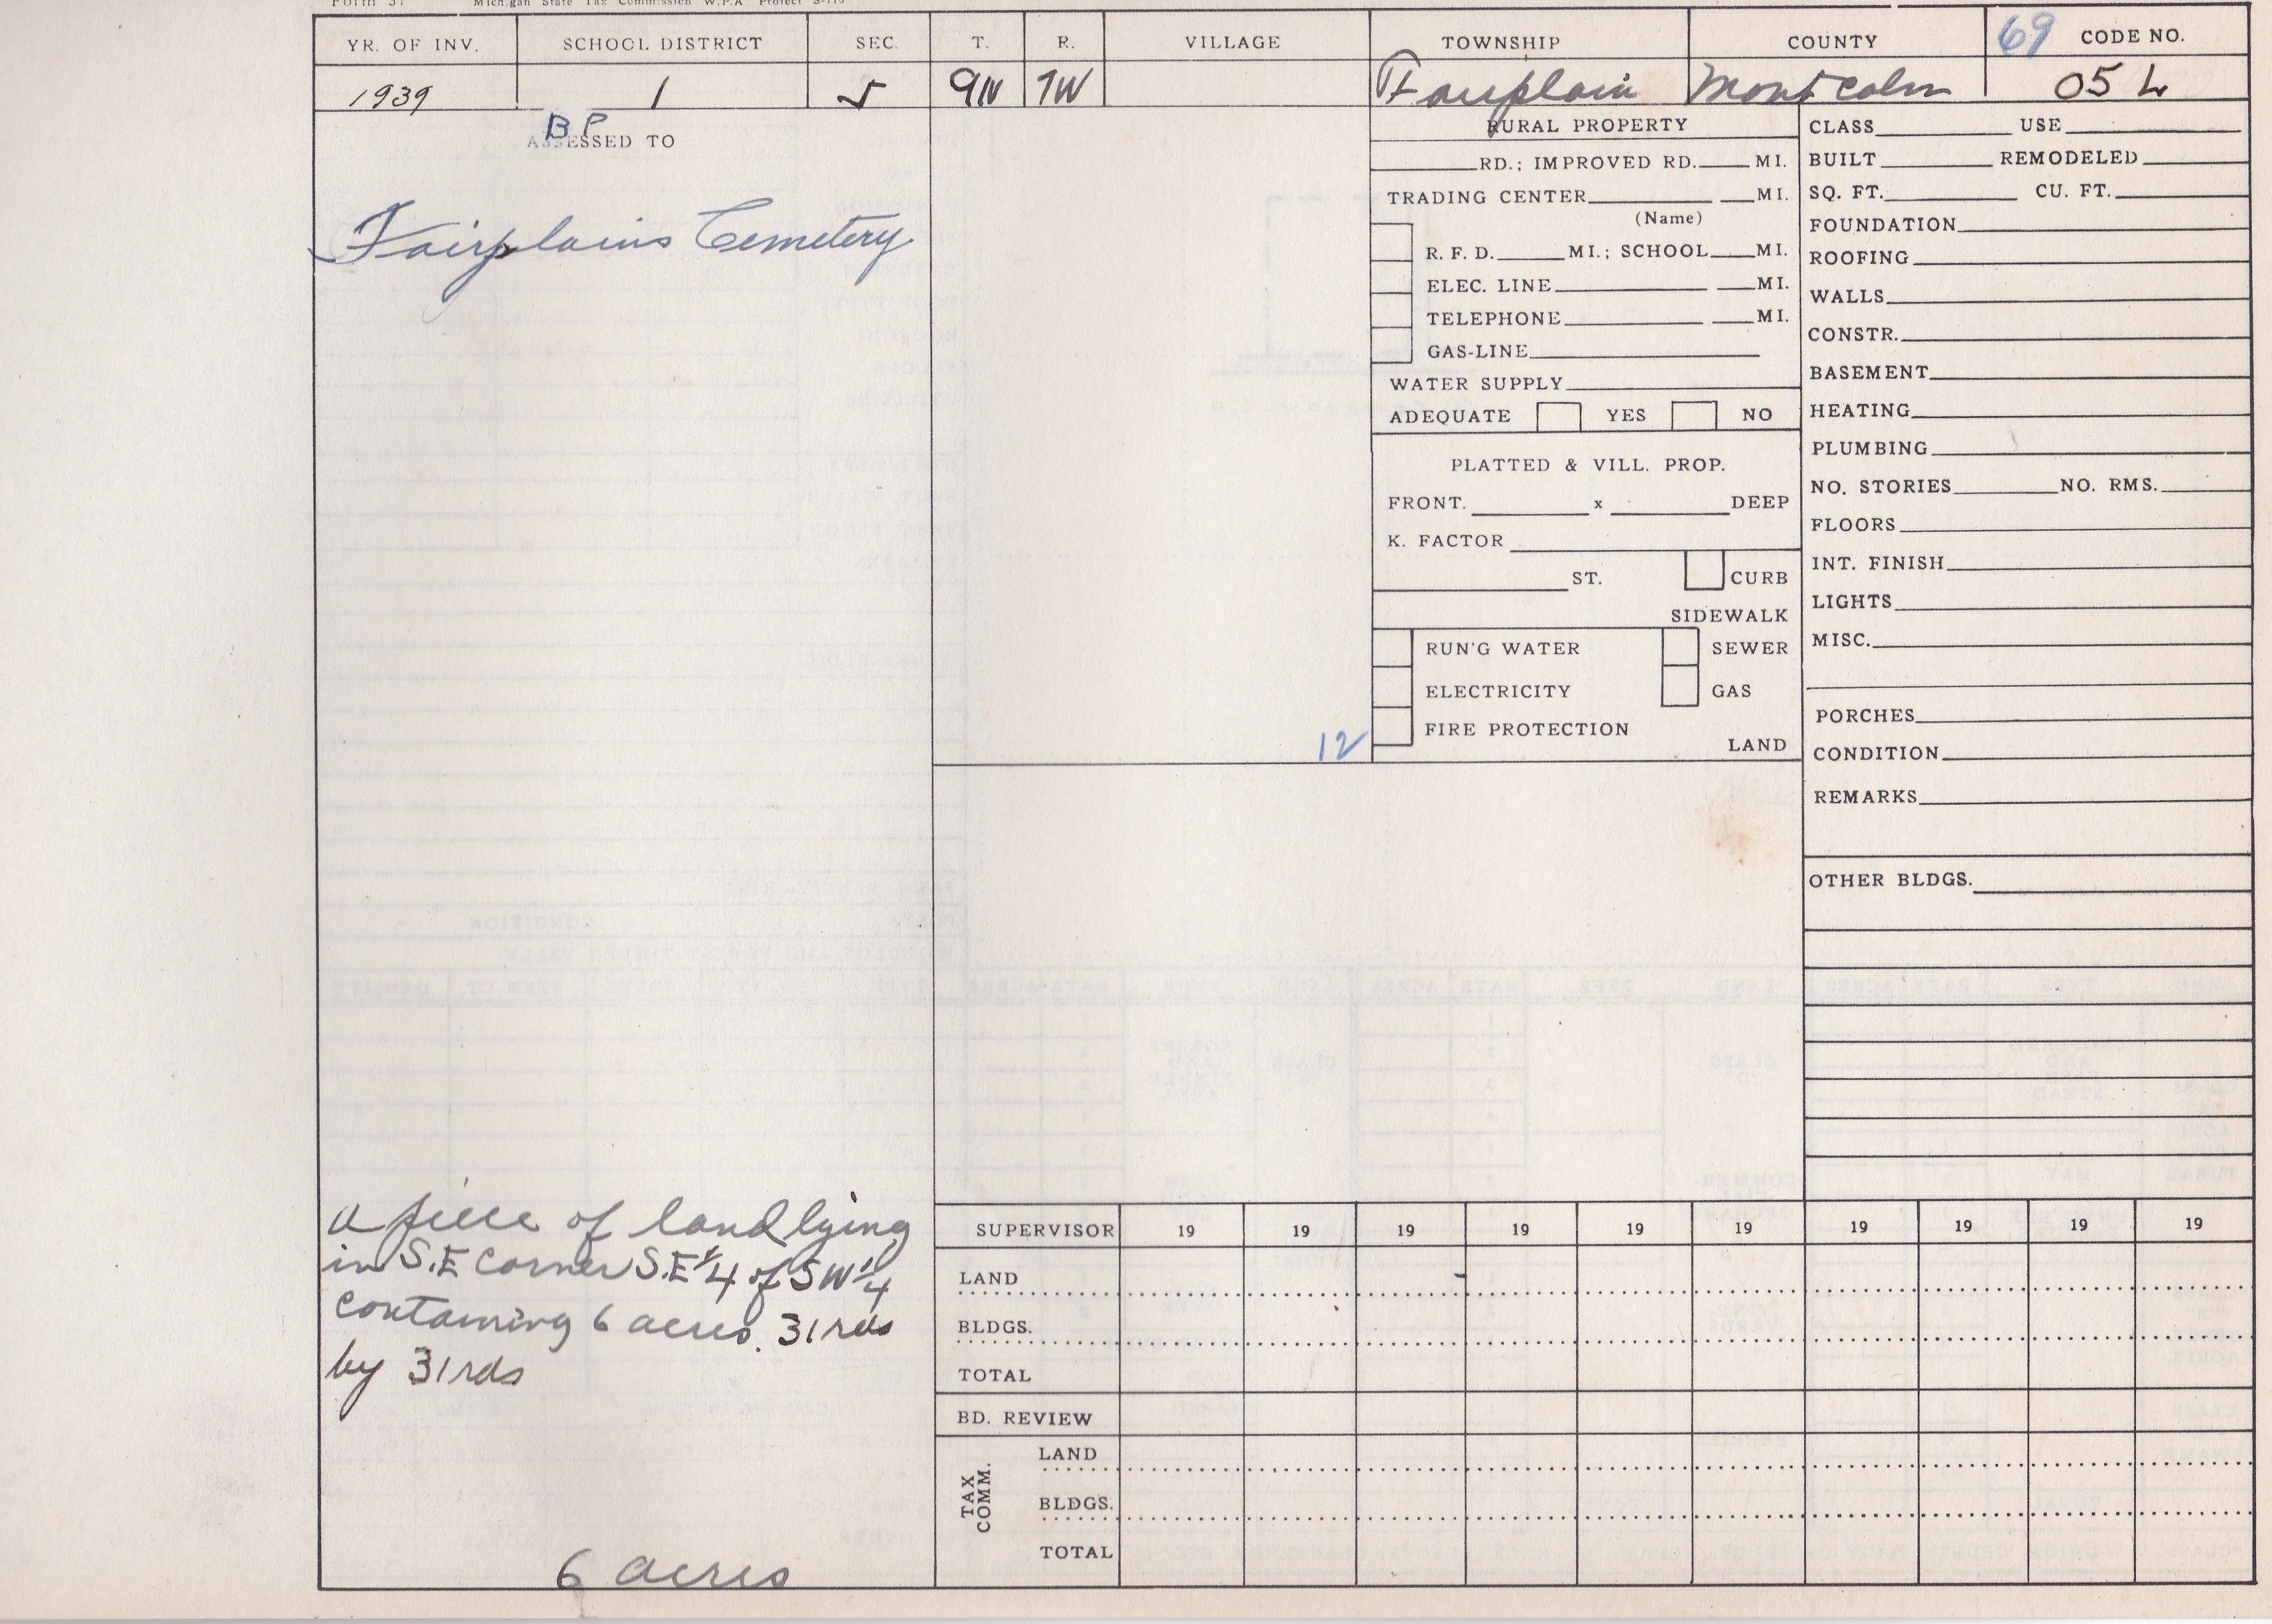 Form 31 Michigan State Tax Commission W.P.A Project S-119
YR. OF INV. SCHOOL DISTRICT SEC. T. R. VILLAGE TOWNSHIP COUNTY 69 CODE NO.
1939 1 5 9N 7W Fairplain Montcalm 05 L
BP
ASSESSED TO
Fairplains Cemetery
a piece of land lying
in S.E Corner S.E 1/4 of SW 1/4
containing 6 acres. 31 rds
by 31 rds
6 acres
12
RURAL PROPERTY
RD.; IMPROVED RD. MI.
TRADING CENTER MI.
(Name)
R. F. D. MI.; SCHOOL MI.
ELEC. LINE MI.
TELEPHONE MI.
GAS-LINE
WATER SUPPLY
ADEQUATE YES NO
PLATTED & VILL. PROP.
FRONT. x DEEP
K. FACTOR
ST. CURB
SIDEWALK
RUN'G WATER SEWER
ELECTRICITY GAS
FIRE PROTECTION
LAND
CLASS USE
BUILT REMODELED
SQ. FT. CU. FT.
FOUNDATION
ROOFING
WALLS
CONSTR.
BASEMENT
HEATING
PLUMBING
NO. STORIES NO. RMS.
FLOORS
INT. FINISH
LIGHTS
MISC.
PORCHES
CONDITION
REMARKS
OTHER BLDGS.
SUPERVISOR 19 19 19 19 19 19 19 19 19
LAND
BLDGS.
TOTAL
BD. REVIEW
TAX COMM.
LAND
BLDGS.
TOTAL